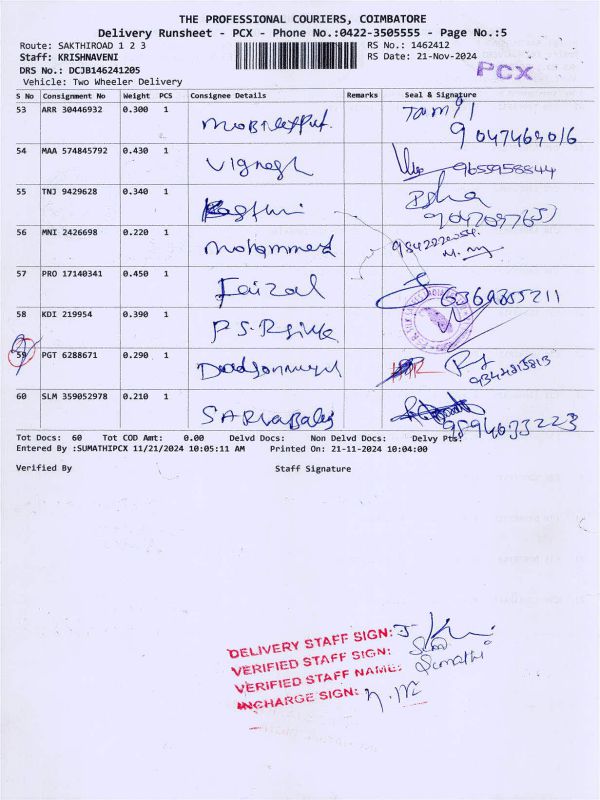 THE PROFESSIONAL COURIERS, COIMBATORE
Delivery Runsheet - PCX - Phone No.:0422-3505555 - Page No.:5
Route: SAKTHIROAD 1 2 3
RS No.: 1462412
Staff: KRISHNAVENI
RS Date: 21-Nov-2024
DRS No.: DCJB146241205
PCX
Vehicle: Two Wheeler Delivery
S No Consignment No Weight PCS Consignee Details Remarks Seal & Signature
53 ARR 30446932 0.300 1
9047469016
54 MAA 574845792 0.430 1 Vignesh 9655958844
55 TNJ 9429628 0.340 1
56 MNI 2426698 0.220 1 Mohammed
57 PRO 17140341 0.450 1 Faizal 6369355211
58 KDI 219954 0.390 1
59 PGT 6288671 0.290 1
60 SLM 359052978 0.210 1 9894633223
Tot Docs: 60 Tot COD Amt: 0.00 Delvd Docs: Non Delvd Docs: Delvy Pts:
Entered By :SUMATHIPCX 11/21/2024 10:05:11 AM Printed On: 21-11-2024 10:04:00
Verified By Staff Signature
DELIVERY STAFF SIGN:
VERIFIED STAFF SIGN:
VERIFIED STAFF NAME: Sumathi
INCHARGE SIGN: